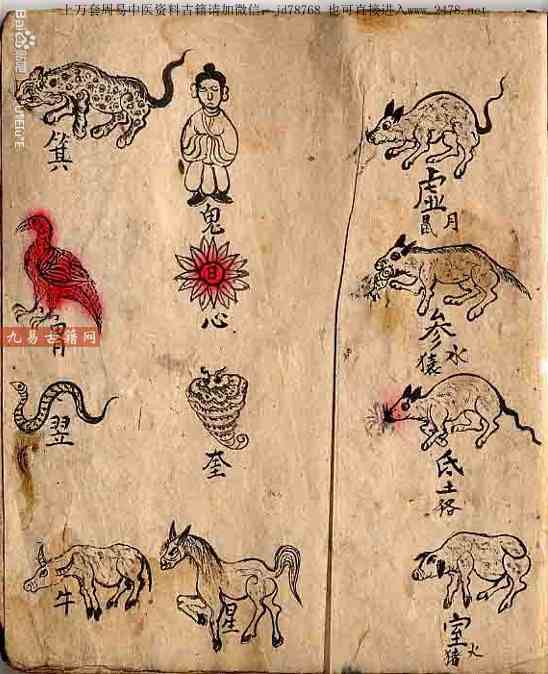 上万套周易中医资料古籍请加微信：jd78768 也可直接进入www.2478.net
Bai 贴吧
箕
鬼
虚
鼠月
胃
日
心
九易古籍网
参
猿水
翌
奎
氐
土
牛
星
室
猪火